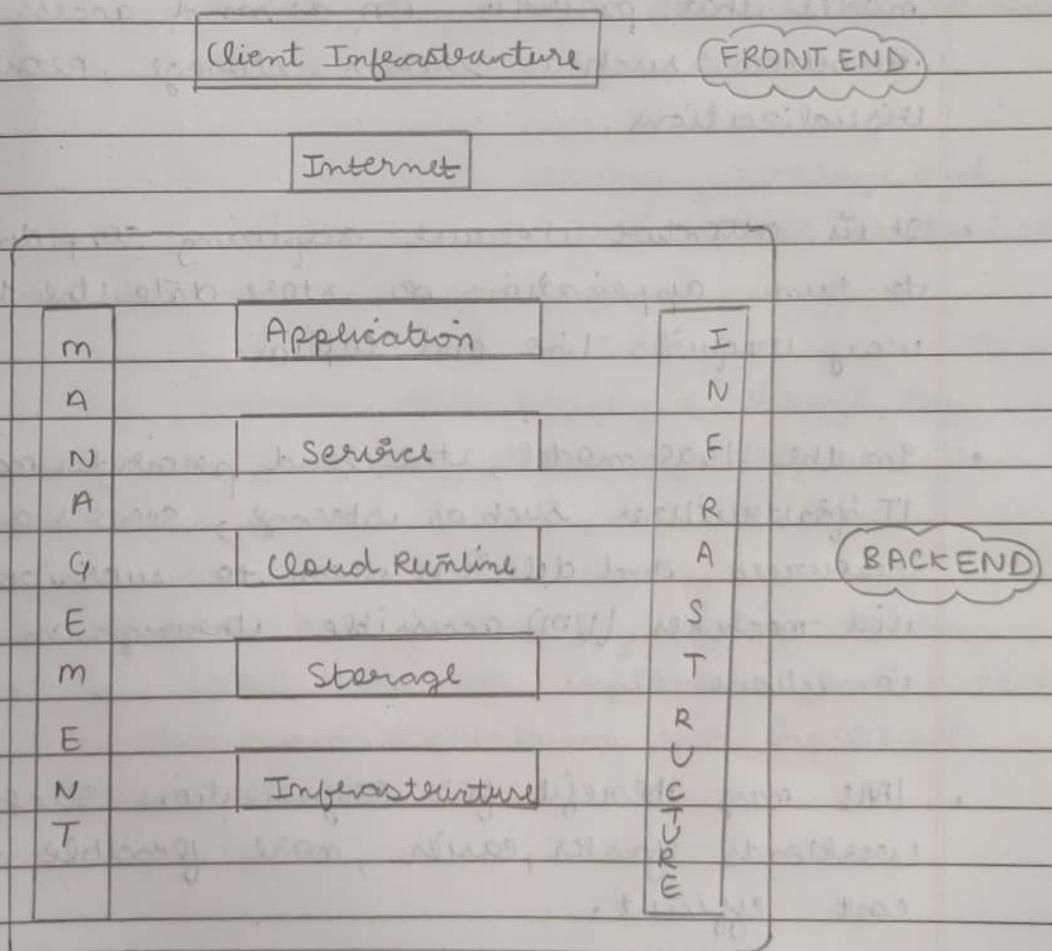 Client Infrastructure
FRONT END
Internet
MANAGEMENT
Application
Service
Cloud Runtime
Storage
Infrastructure
INFRASTRUCTURE
BACKEND